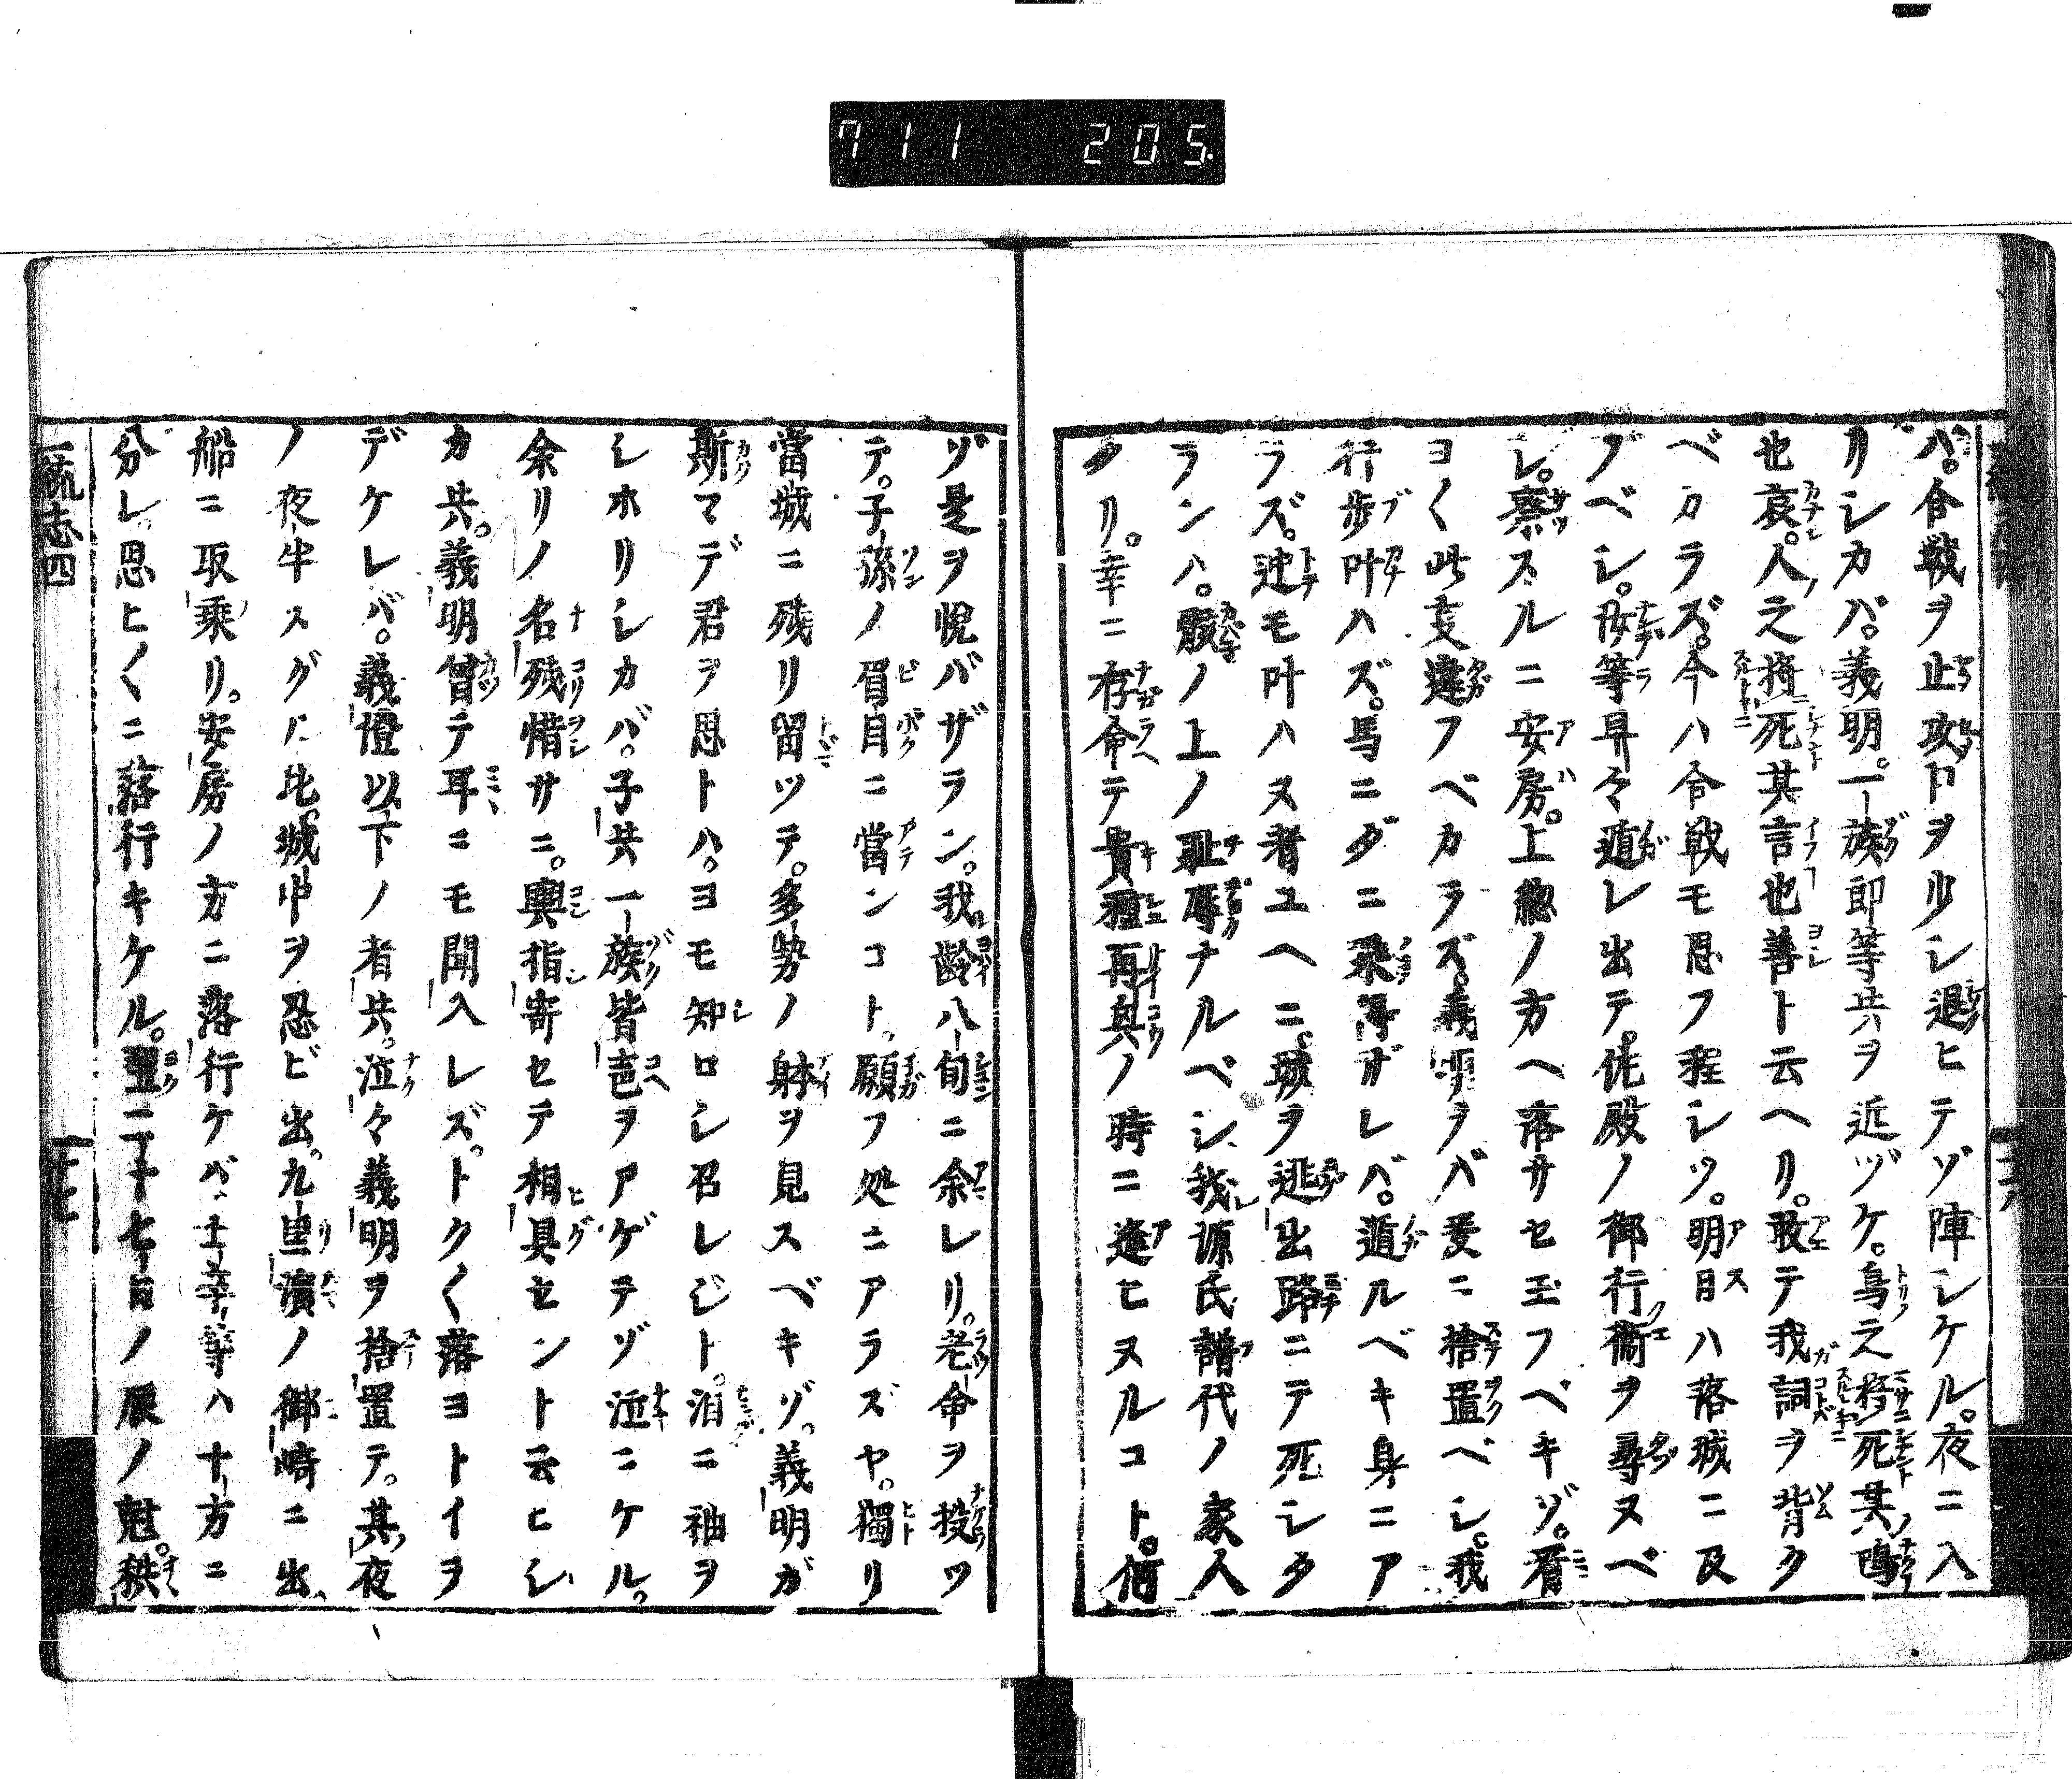 711 205
バ。合戦ヲ止。攻口ヲ少シ退ヒテゾ陣シケル。夜ニ入
リシカバ。義明。一族郎等共ヲ近ヅケ。鳥之将死其鳴
也哀。人之将死其言也善ト云ヘリ。敢テ我詞ヲ背ク
ベカラズ。今ハ合戦モ思フ程シツ。明日ハ落城ニ及
ブベシ。汝等早々遁レ出テ。佐殿ノ御行衛ヲ尋ヌベ
シ。察スルニ安房。上総ノ方ヘ落サセ玉フベキゾ。看
ヨく此支違フベカラズ。義明ヲバ爰ニ捨置ベシ。我
行歩叶ハズ。馬ニダニ乗得ザレバ。遁ルベキ身ニア
ラズ。迚モ叶ハヌ者ユヘニ。城ヲ逃出路ニテ死シタ
ランハ。骸ノ上ノ耻辱ナルベシ。我源氏譜代ノ家人
タリ。幸ニ存命テ貴種再興ノ時ニ逢ヒヌルコト。何
ゾ是ヲ悦バザラン。我齢八旬ニ余レリ。老命ヲ投ツ
テ。子孫ノ眉目ニ當ンコト。願フ処ニアラズヤ。獨リ
當城ニ残リ留ツテ。多勢ノ躰ヲ見スベキゾ。義明ガ
斯マデ君ヲ思トハ。ヨモ知ロシ召レジト。泪ニ袖ヲ
シホリシカバ。子共一族皆声ヲアゲテゾ泣ニケル。
余リノ名残惜サニ。輿指寄セテ相具セント云ヒシ
カ共。義明曾テ耳ニモ聞入レズ。トクく落ヨトイヲ
デケレバ。義澄以下ノ者共。泣々義明ヲ捨置テ。其夜
ノ夜半スグル比。城中ヲ忍ビ出。九里濱ノ御崎ニ出。
船ニ取乗リ。安房ノ方ニ落行ケバ。士卒等ハ十方ニ
分レ。思ヒ〱ニ落行キケル。翌二十七日ノ辰ノ尅。秩
疏志四